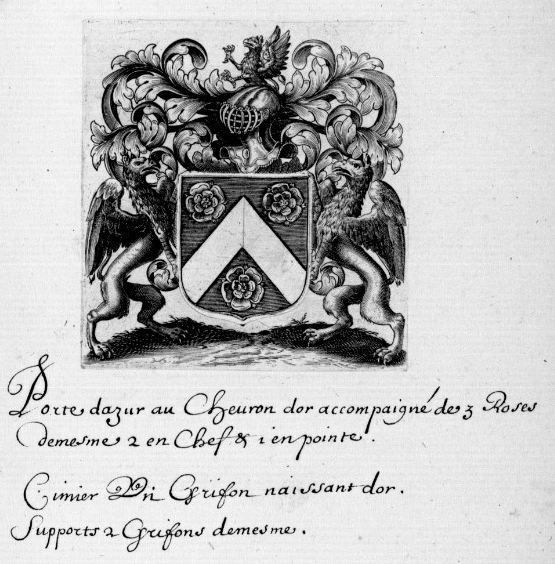 Porte dazur au Cheuron dor accompaigné de 3 Roses
demesme 2 en Chef & 1 en pointe.
Cimier Vn Grifon naissant dor.
Supports 2 Grifons demesme.